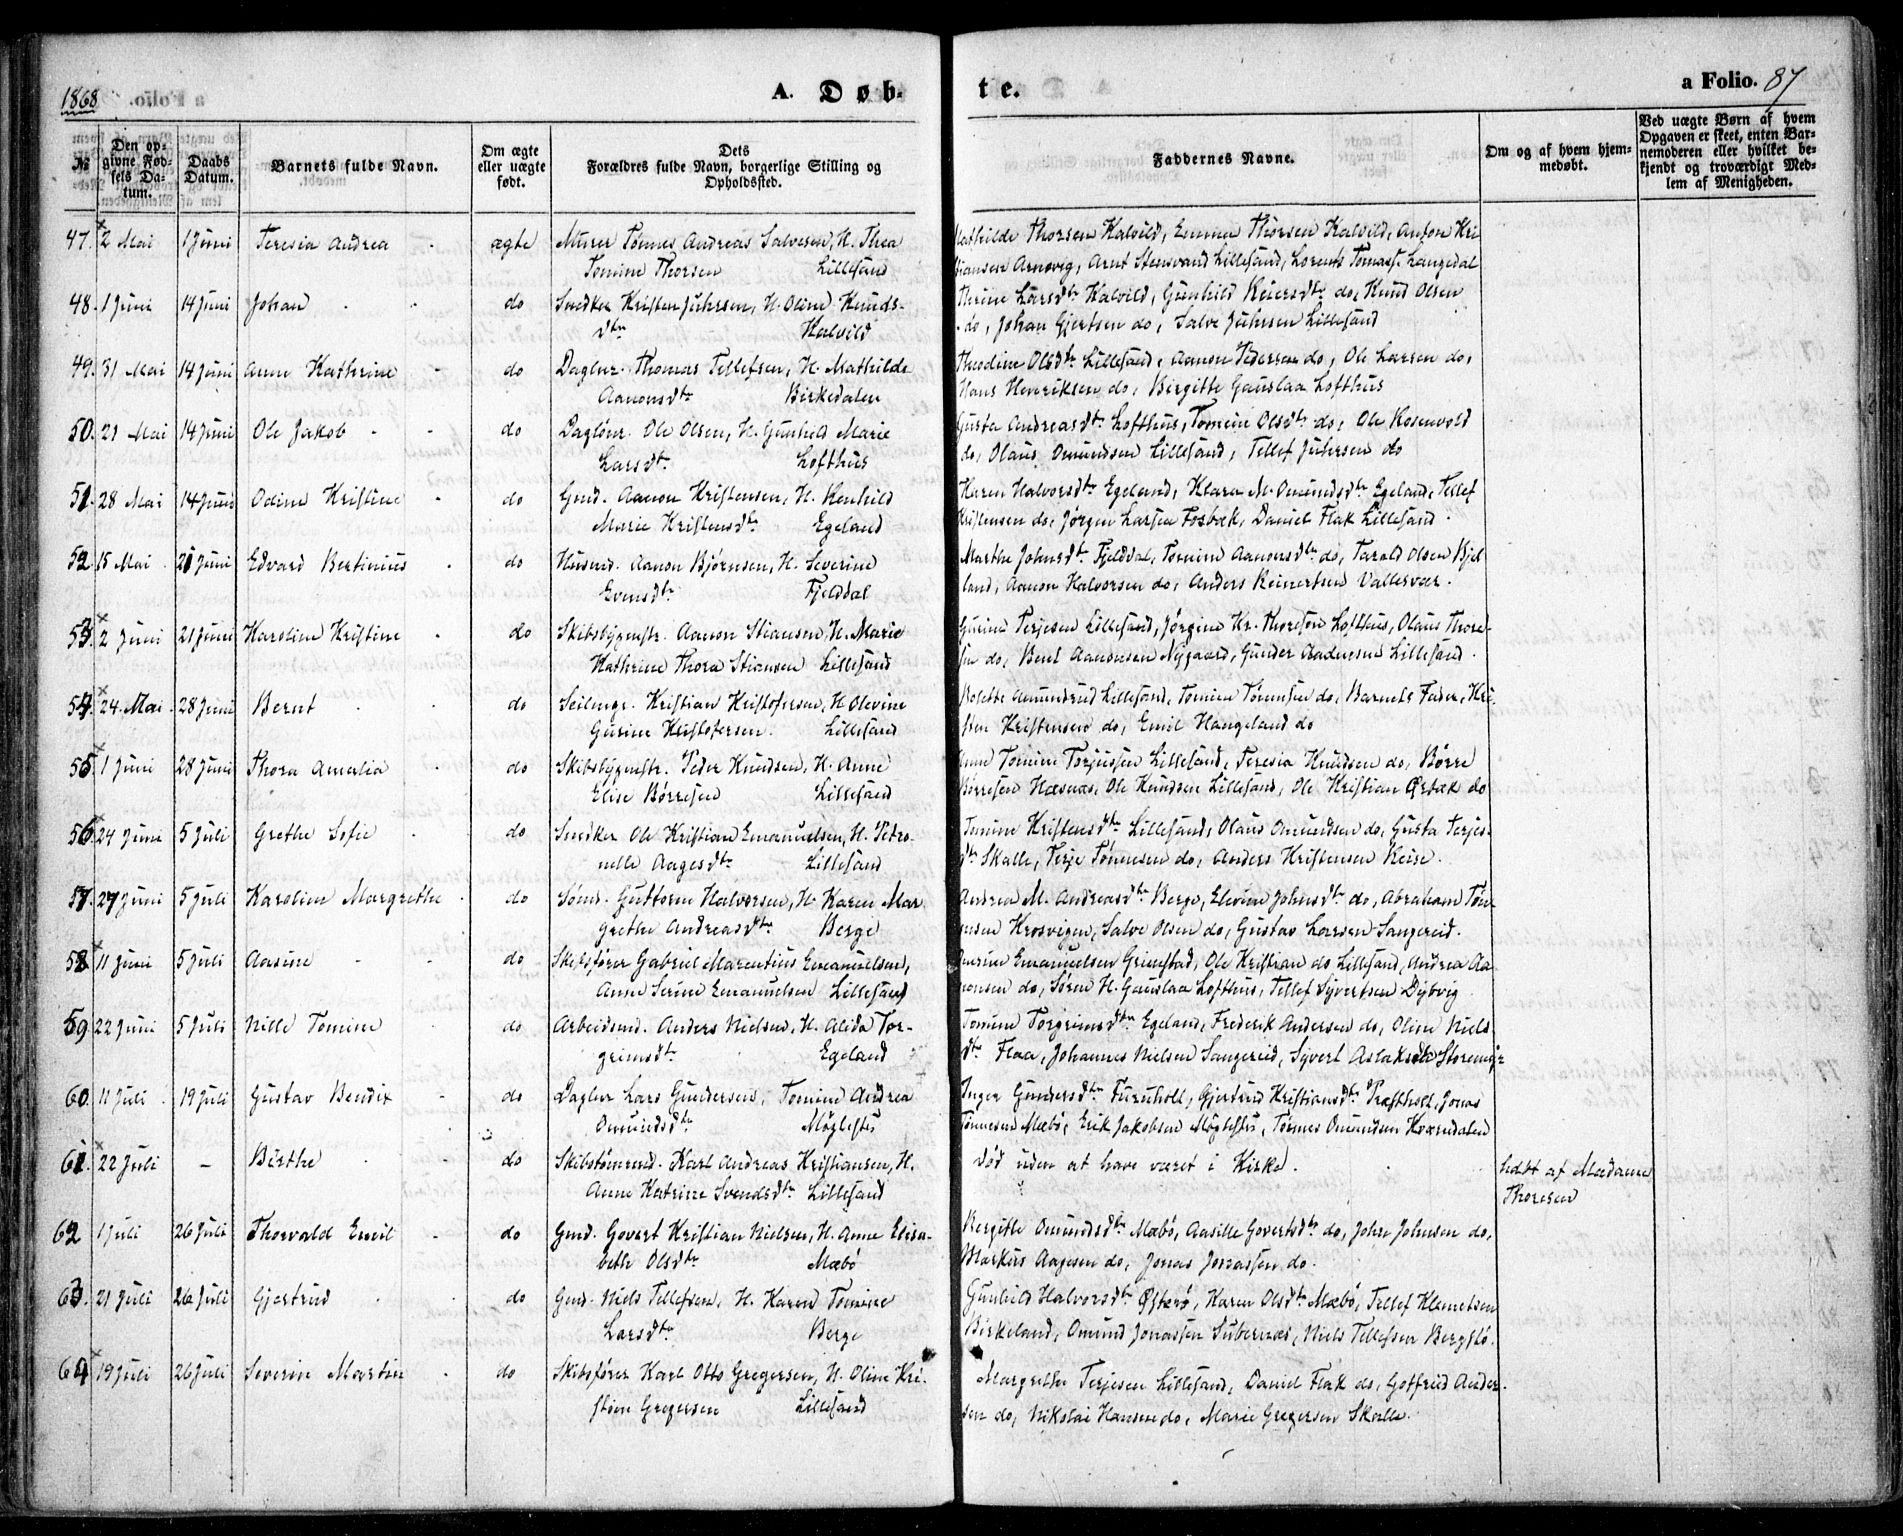 1868
A. Døb-
te.
a Folio. 87
№
Den opgivne Fødsels Datum.
Daabs Datum.
Barnets fulde Navn.
Om ægte eller uægte født.
Dets Forældres fulde Navn, borgerlige Stilling og Opholdssted.
Faddernes Navne.
Om og af hvem hjemmedøbt.
Ved uægte Børn af hvem Opgaven er skeet, enten Barnemoderen eller hvilket bekjendt og troværdigt Medlem af Menigheden.
47. 2 Mai 1 Juni Teresia Andrea ægte Murer Tønnes Andreas Salvesen, H. Thea Mathilde Thorsen Kalvild, Emma Thorsen Kalvild, Anton Kri
Tomine Thorsen Lillesand stiansen Arnevig, Arnt Stensvand Lillesand, Lorents Tomass. Langedal
48. 1 Juni 14 Juni Johan do Snedker Kristen Juhrsen, H. Oline Knuds- Thrine Larsdtr Kalvild, Gunhild Reiersdtr do, Knud Olsen
dtr Kalvild do, Johan Gjertsen do, Salve Juhrsen Lillesand
49. 31 Mai 14 Juni Anne Kathrine do Daglnr. Thomas Tellefsen, H. Mathilde Theodine Olsdtr Lillesand, Aanon Pedersen do, Ole Larsen do,
Aanonsdtr Birkedalen Hans Henriksen do, Birgitte Gauslaa Lofthus
50. 21 Mai 14 Juni Ole Jakob do Daglønr. Ole Olsen, H. Gunhild Marie Gusta Andreasdtr Lofthus, Tomine Olsdtr do, Ole Rosenvold
Larsdtr. Lofthus do, Olaus Omundsen Lillesand, Tellef Juhrsen do
51. 28 Mai 14 Juni Odine Kristine do Gmd. Aanon Kristensen, H. Renhild Karen Halvorsdtr Egeland, Klara M. Omundsdtr Egeland, Tellef
Marie Kristensdtr Egeland Kristensen do, Jørgen Larsen Fosbæk, Daniel Flak Lillesand.
52. 15 Mai 21 Juni Edvard Bertinius do Husmd. Aanon Bjørnsen, H. Severine Marthe Johnsdtr Fjelddal, Tomine Aanonsdtr do, Tarald Olsen Kjel
Evensdtr Fjelddal land, Aanon Halvorsen do, Anders Reinertsen Vallesvær.
53. 2 Juni 21 Juni Karoline Kristine do Skibsbygmstr. Aanon Stiansen, H. Marie Gurine Terjesen Lillesand, Jørgine Kr. Thoresen Lofthus, Olaus Thore-
Kathrine Thora Stiansen Lillesand sen do, Bent Aanonsen Nygaard, Gunder Andersen Lillesand.
54. 24 Mai 28 Juni Bernt do Seilmgr. Kristian Kristofersen, H. Olevine Bolette Amundrud Lillesand, Tomine Tønnesen do, Barnets Fader, Kri-
Gurine Kristofersen. Lillesand sten Kristensen do, Emil Hangeland do
55. 1 Juni 28 Juni Thora Amalia do Skibsbygmstr. Peder Knudsen, H. Anne Anne Tomine Torjussen Lillesand, Teresia Knudsen do, Børre
Elise Børresen Lillesand Børresen Næsnæs, Ole Knudsen Lillesand, Ole Kristian Ørbæk do
56. 24 Juni 5 Juli Grethe Sofie do Snedker Ole Kristian Emanuelsen, H. Petro- Tomine Kristensdtr Lillesand, Olaus Omundsen do, Gusta Terjes-
nelle Aagesdtr Lillesand dtr Skalle, Terje Tønnesen do, Anders Kristensen Reise.
57. 27 Juni 5 Juli Karoline Margrethe do Sømd. Guttorm Halvorsen, H. Karen Mar Andrea M. Andreasdtr Berge, Elevine Johnsdtr do, Abraham Tøn-
grethe Andreasdtr Berge nesen Krosvigen, Salve Olsen do, Gustav Larsen Sangereid.
58. 11 Juni 5 Juli Aasine do Skibsfører Gabriel Marentius Emanuelsen, Emanuelsen Grimstad, Ole Kristian do Lillesand, Andrea Aa-
Anne Serine Emanuelsen Lillesand nonsen do, Søren H. Gauslaa Lofthus, Tellef Syvertsen Dybvig
59. 22 Juni 5 Juli Nille Tomine do Arbeidsmd. Anders Nielsen, H. Alida Tor- Tomine Torgrimsdtr Egeland, Frederik Andersen do, Oline Niels-
grimsdtr Egeland dtr Flaa, Johannes Nielsen Sangereid, Syvert Aslaksen
60. 11 Juli 19 Juli Gustav Bendix do Daglnr Lars Gundersen, Tomine Andrea Inger Gundersdtr Furuholt, Gjertrud Kristiansdtr Præstholt, Jonas
Omundsdtr Møglestu Tønnesen Mæbø, Erik Jakobsen Møglestu, Tønnes Omundsen Kværndalen
61. 22 Juli - Birthe do Skibstømrmd. Karl Andreas Kristiansen, H. Død uden at have været i Kirke. hdbt af Madame
Anne Katrine Svendsdtr Lillesand Thoresen
62 1 Juli 26 Juli Thorvald Emil do Gmd. Govert Kristian Nielsen, H. Anne Elisa- Bergitte Omundsdtr Mæbø, Aasille Govertsdtr do, John Johnsen do,
beth Olsdtr Mæbø Markus Aagesen do, Jonas Jonassen do
63. 21 Juli 26 Juli Gjertrud do Gmd. Niels Tellefsen, H. Karen Tomine Gunhild Halvorsdtr Østerø, Karen Olsdtr Mæbø, Tellef Klemetsen
Larsdtr. Berge Birkeland, Omund Jonassen Subernæs, Niels Tellefsen Bergstø.
64 19 Juli 26 Juli Severin Martin do Skibsfører Karl Otto Gregersen, H. Oline Kri- Margrethe Terjesen Lillesand, Daniel Flak do, Gotfried Ander-
stine Gregersen Lillesand sen do, Nikolai Hansen do, Marie Gregersen Skalle.